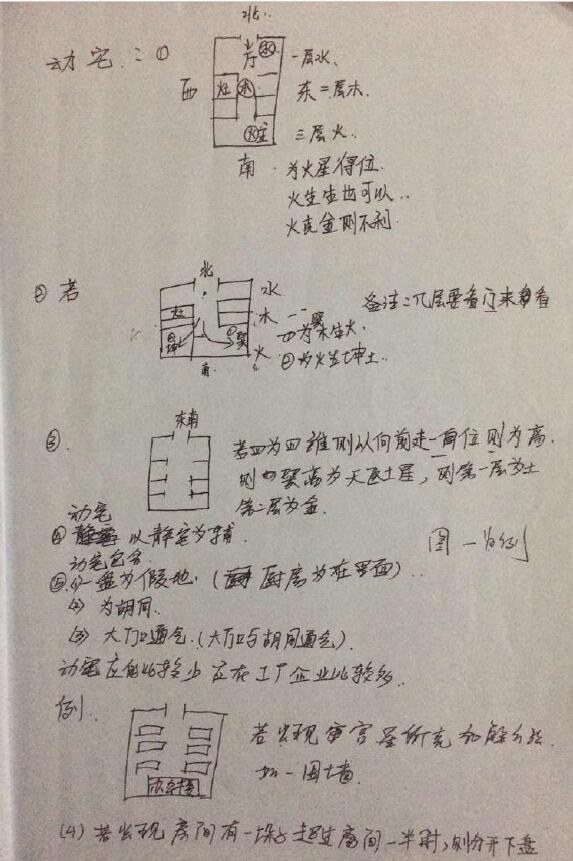 北
动宅：①
厅 水
一层水
西 灶 木
东 二层木
火 主
三层火
南
为火星得位
火生土也可以
火克金则不利
② 若
北
水
灶
木
巽
备注：几层要看厅来看
①为木生火
坤 巽 火
②为火生坤土
南
③
东南
若四为四维则以向前走一位则为离
则巽离为天医土星，则第一层为土
第二层为金
动宅
④ 以静宅为辅
图一为例
动宅包含
⑤(1)一盘为假地（厨房为在里面）
(2) 为胡同
(3) 大门口通气（大门口与胡同通气）
动宅应的比较少 应在工厂企业比较多
例
若出现 宫星所克 化解分法
加一围墙
(4) 若出现房间有一 超过房间一半时，则分开下盘